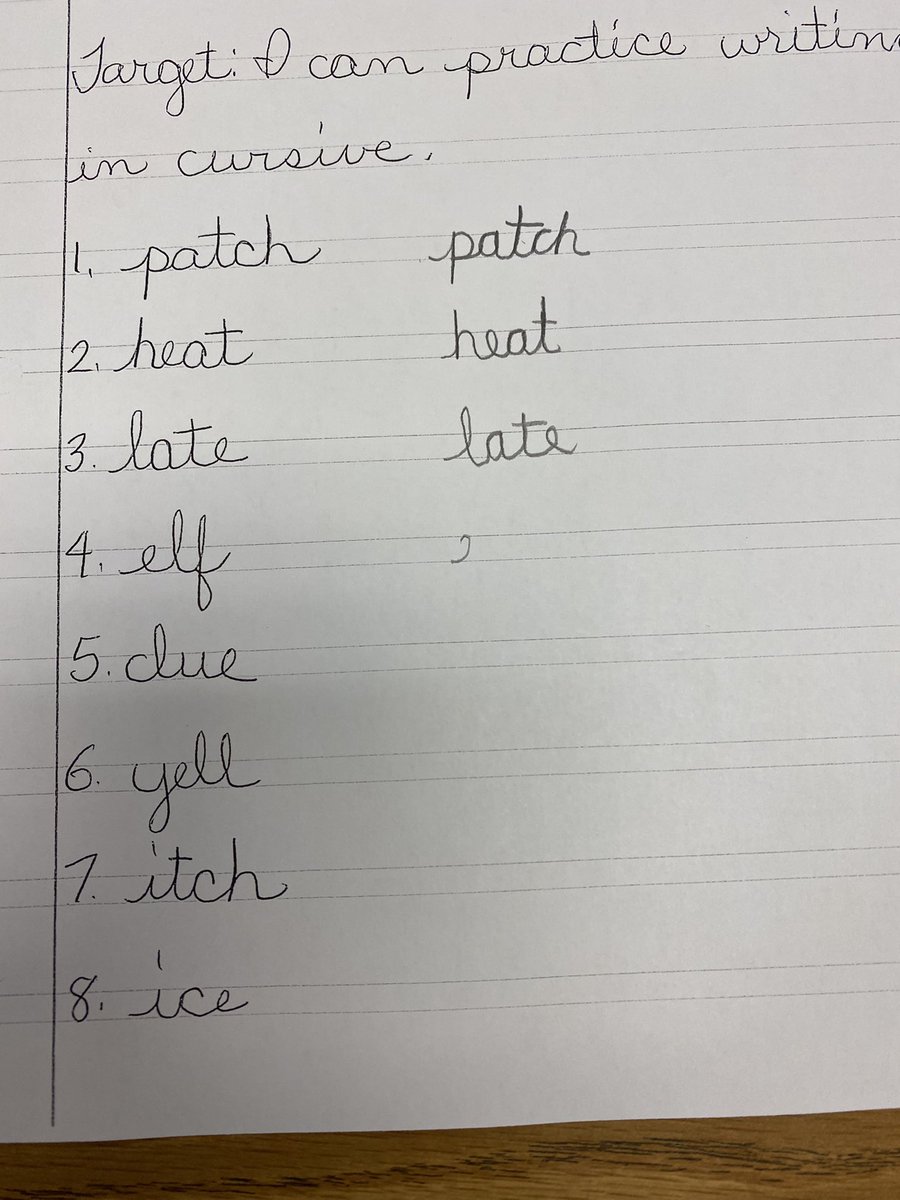 Target: I can practice writin
in cursive.
1. patch patch
2. heat heat
3. late late
4. elf
5. clue
6. yell
7. itch
8. ice